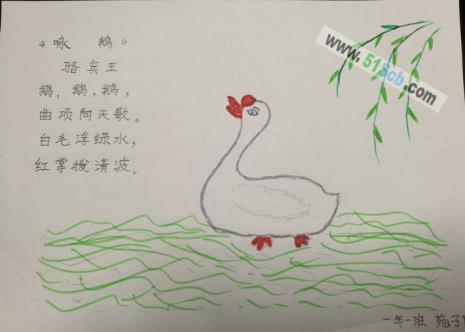 《咏 鹅》
骆宾王
鹅，鹅，鹅，
曲项向天歌。
白毛浮绿水，
红掌拨清波。
www.518cb.com
一年一班 苑子